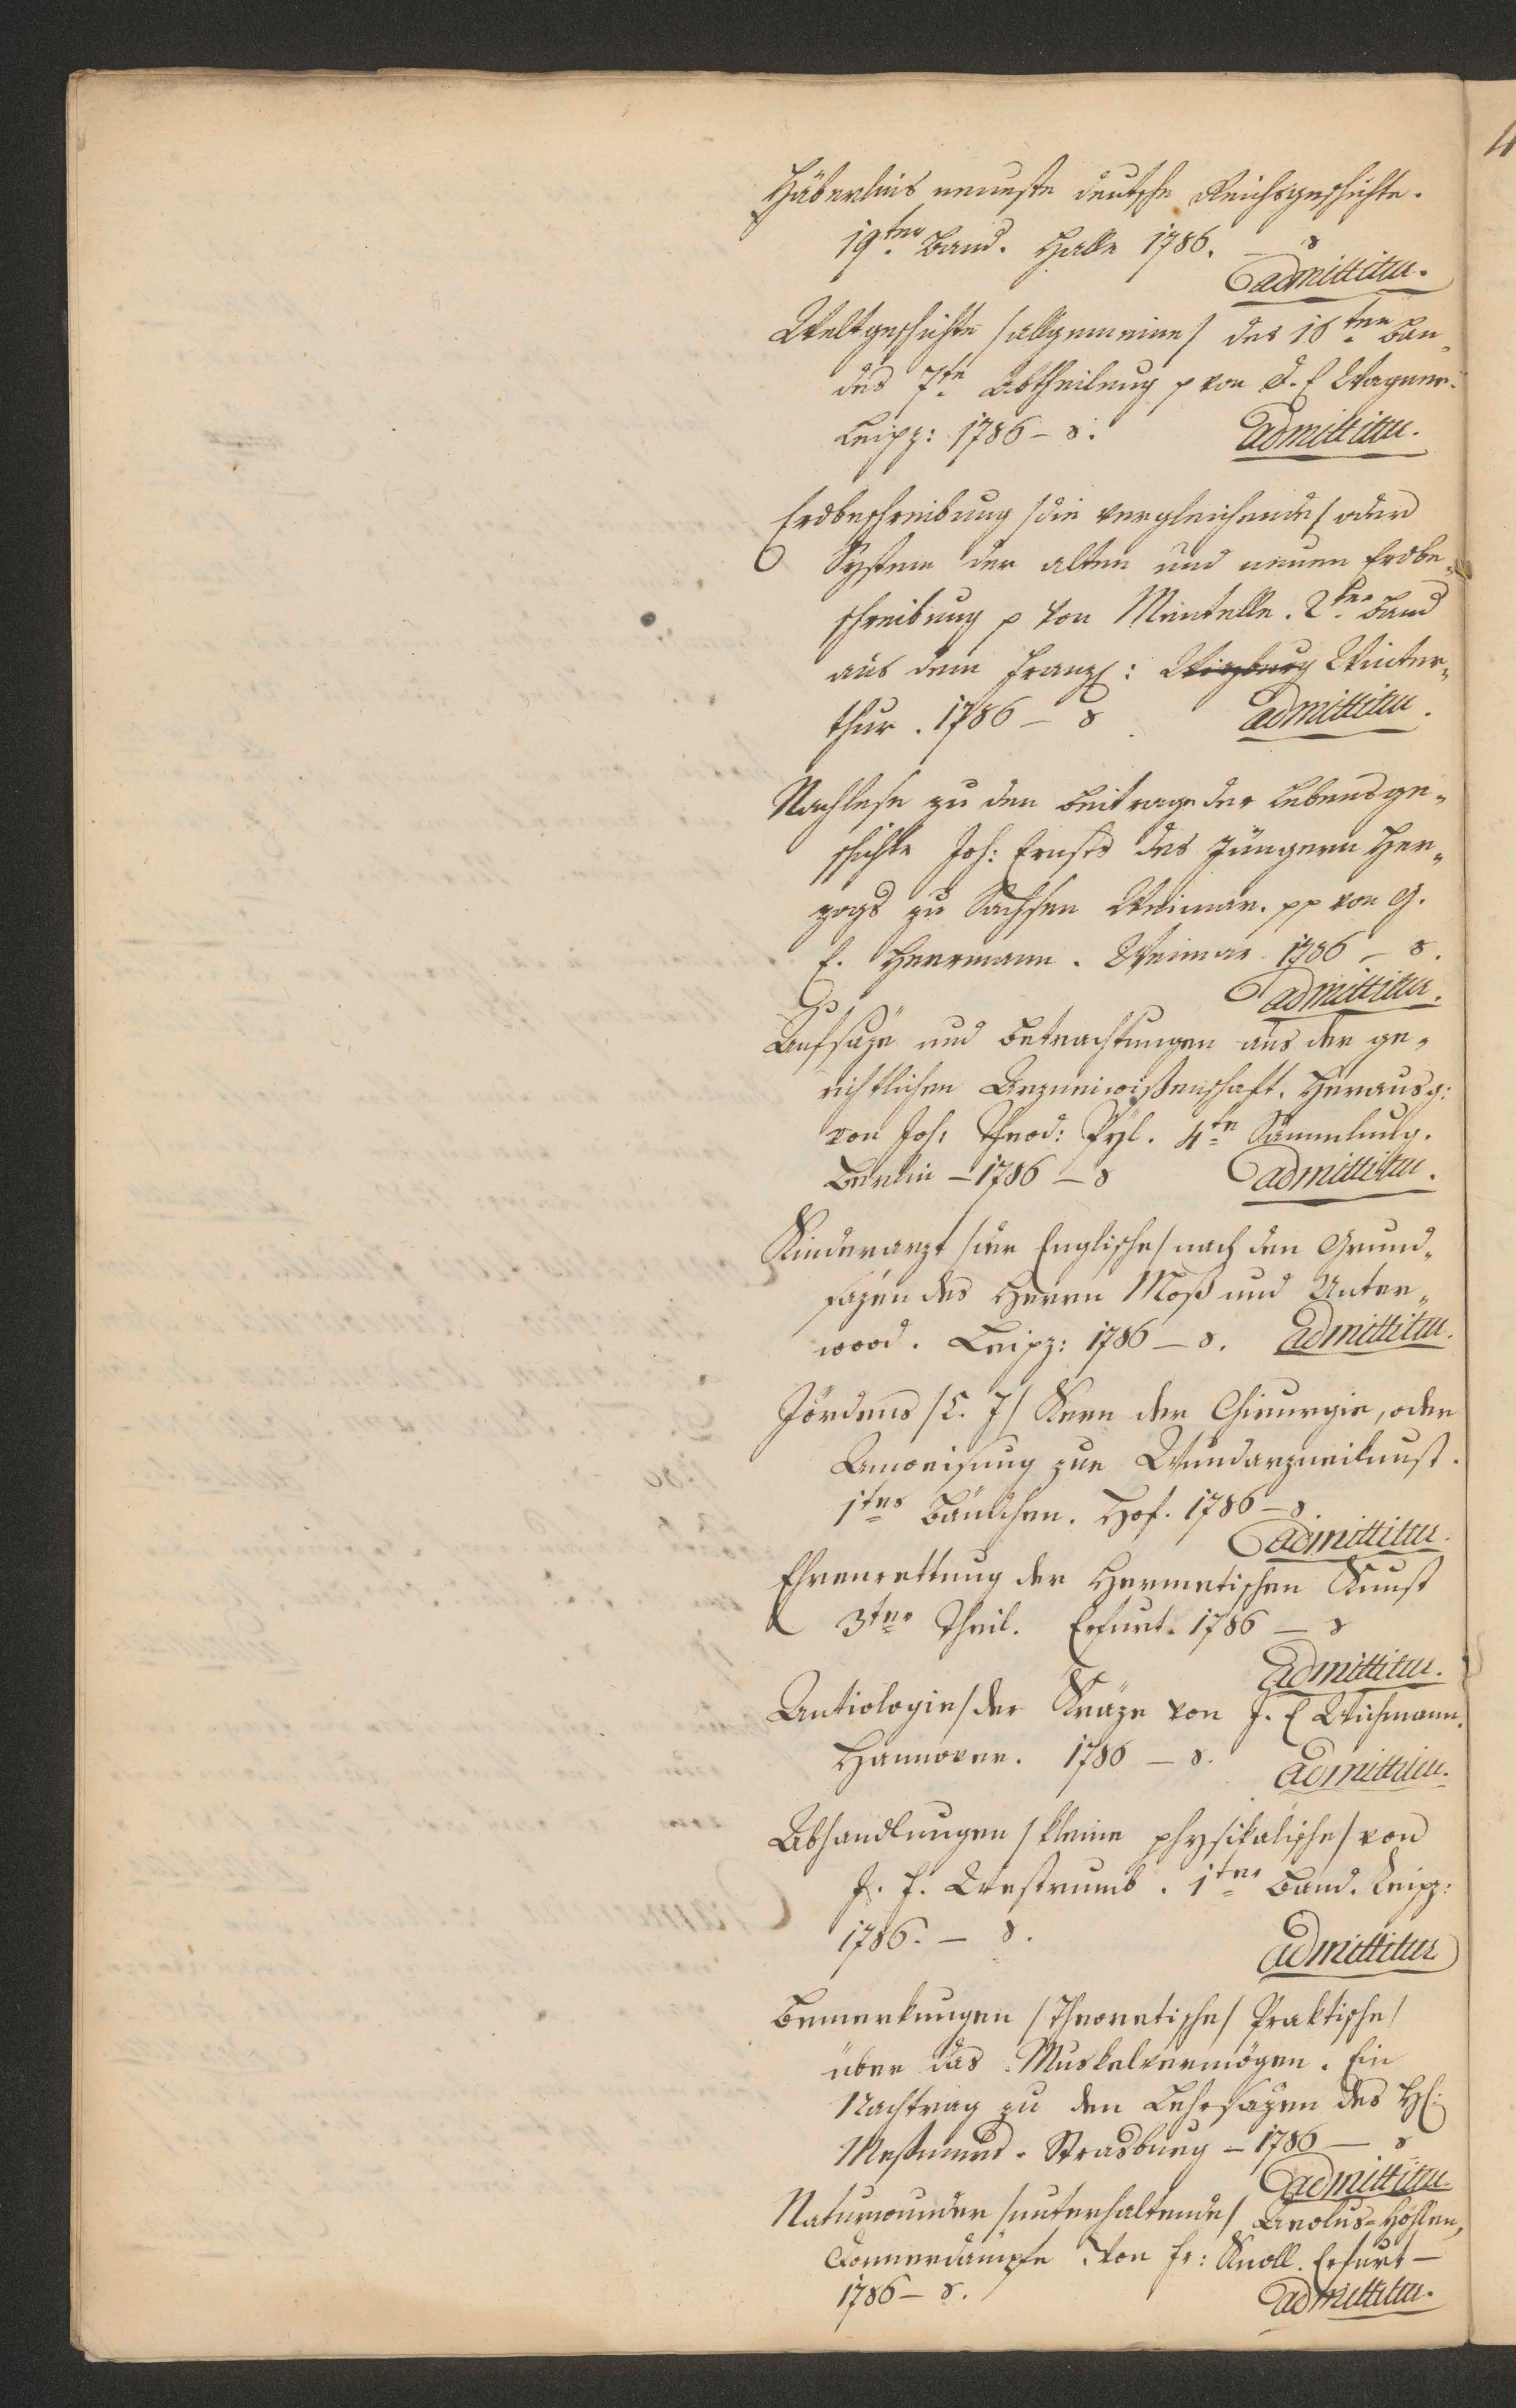 Häberlins neueste deutsche Reichsgeschichte.
19ter Band. Halle 1786. — 8
admittitur.
Weltgeschichte /allgemeine/ des 16ten Ban„
des 7te Abtheilung p von D. E Wagner.
Leipz: 1786 – 8.
admittitur.
Erdbeschreibung /die vergleichende/ oder
System der alten und neuen Erdbe„
schreibung p von Mentelle. 2ter Band
aus dem Franz: Wirzburg Winter„
thur. 1786 – 8
admittitur.
Nachlese zu dem Beitrage der Lebensge„
schichte Joh: Ernsts des Jüngern Her„
zogs zu Sachsen Weimar. pp von G.
E. Heermann. Weimar 1786 – 8.
admittitur.
Aufsäze und Betrachtungen aus der ge„
richtlichen Arzneiwißenschaft. Herausg:
von Joh: Theod: Pyl. 4te Sammlung.
Berlin – 1786 – 8
admittitur.
Kinderarzt /der Englische/ nach den Grund„
säzen des Herrn Moß und Unter„
wood. Leipz: 1786 – 8. admittitur.
Jördens /P. J/ Kern der Chirurgie, oder
Anweisung zur Wundarzneikunst.
1tes Bändchen. Hof. 1786 – 8
admittitur.
Ehrenrettung der Hermetischen Kunst
3ter Theil. Erfurt. 1786 – 8
admittitur.
Aetiologie /der Kräze von J. E Wichmann.
Hannover. 1786 – 8.
admittitur.
Abhandlungen /kleine physikalische/ von
J. F. Westrumb. 1ter Band. Leipz:
1786. – 8.
admittitur
Bemerkungen /Theoretische/ Praktische/
über das Muskelvermögen. Ein
Nachtrag zu den Lehrsäzen des H:
Meßmers. Strasburg – 1786 – 8
admittitur
Naturwunder /unterhaltende/ Aeolus-Höhlen,
Donnerdämpfe von Fr: Knoll. Erfurt –
1786 – 8.
admittitur.